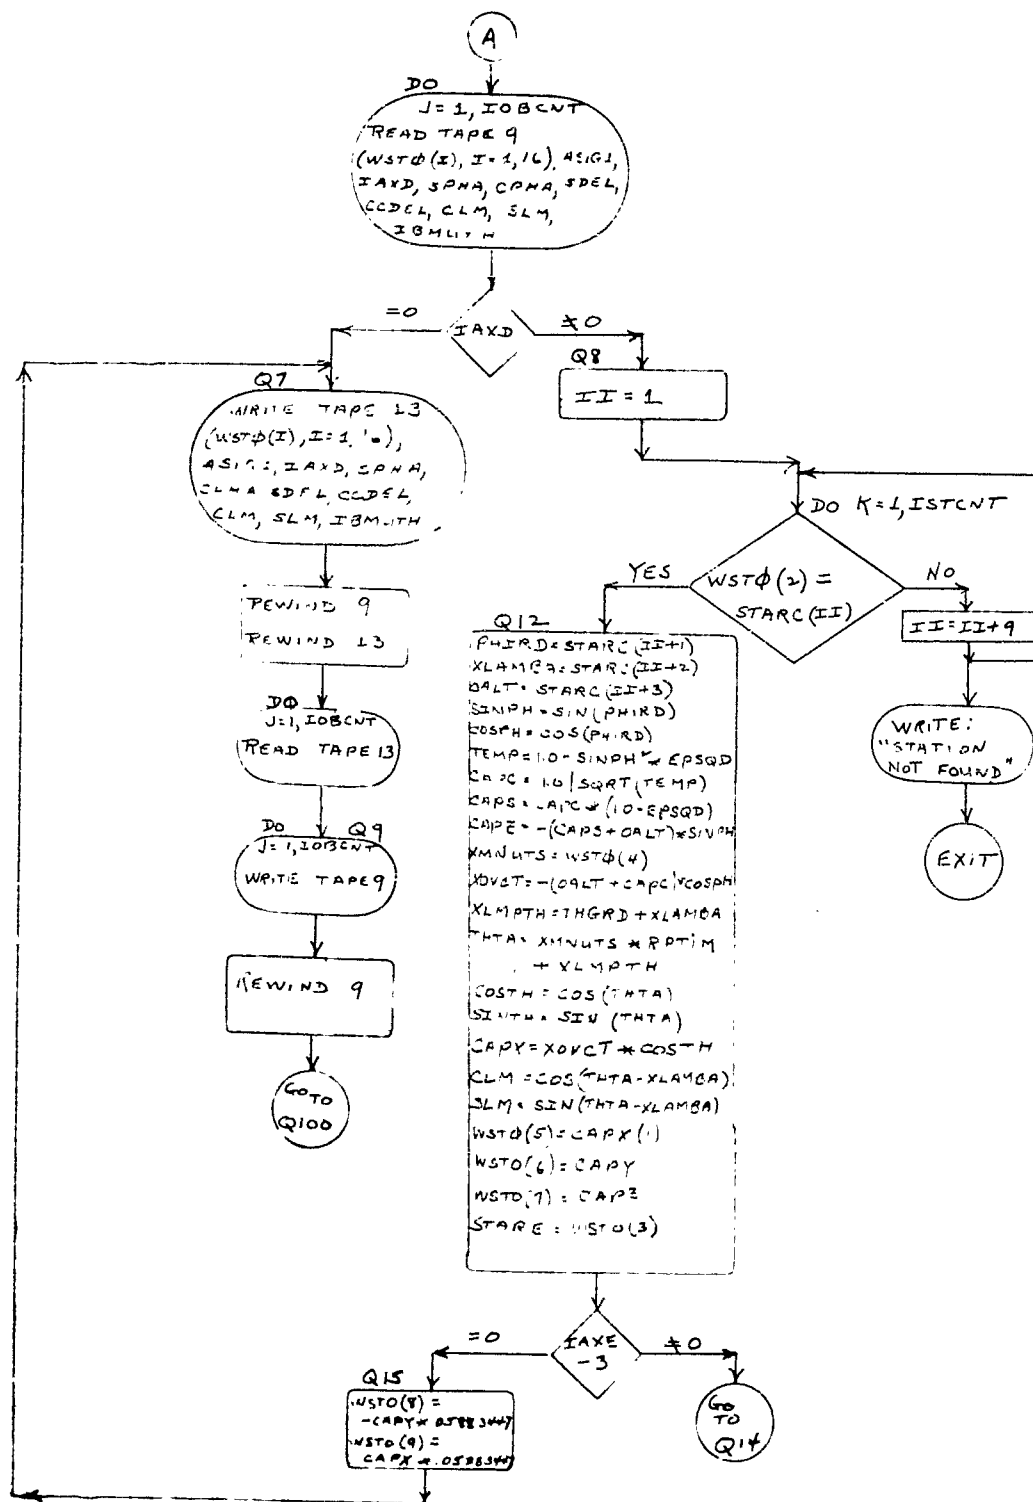 A
DO
J = 1, IOBCNT
READ TAPE 9
(WSTΦ(I), I = 1, 16), ASIG1,
IAXD, SPHA, CPHA, SDEL,
CCDEL, CLM, SLM,
=0
IAXD
≠0
Q8
II = 1
Q7
WRITE TAPE 13
(WSTΦ(I), I = 1,
IAXD, SPHA,
SDEL, CCDEL,
CLM, SLM,
REWIND 9
REWIND 13
DΦ
J = 1, IOBCNT
READ TAPE 13
DO Q9
J = 1, IOBCNT
WRITE TAPE 9
REWIND 9
GO TO
Q100
DO K = 1, ISTCNT
YES
WSTΦ(2) =
STARC(II)
NO
II = II + 9
WRITE:
"STATION
NOT FOUND"
EXIT
Q12
PHIRD = STARC(II+1)
XLAMBA = STARC(II+2)
OALT = STARC(II+3)
SINPH = SIN(PHIRD)
COSPH = COS(PHIRD)
TEMP = 1.0 - SINPH² * EPSQD
CAPC = 1.0 / SQRT(TEMP)
CAPS = CAPC * (1.0 - EPSQD)
CAPZ = -(CAPS + OALT) * SINPH
XMNUTS = WSTΦ(4)
XOVCT = -(OALT + CAPC) * COSPH
XLMPTH = THGRD + XLAMBA
THTA = XMNUTS * RPTIM
+ XLMPTH
COSTH = COS(THTA)
SINTH = SIN(THTA)
CAPY = XOVCT * COSTH
CLM = COS(THTA - XLAMBA)
SLM = SIN(THTA - XLAMBA)
WSTΦ(5) = CAPX(1)
WSTO(6) = CAPY
WSTO(7) = CAPZ
STARE = WSTO(3)
=0
IAXE
-3
≠0
Q15
WSTO(8) =
-CAPY * .05883447
WSTO(9) =
CAPX * .0588344
GO
TO
Q14